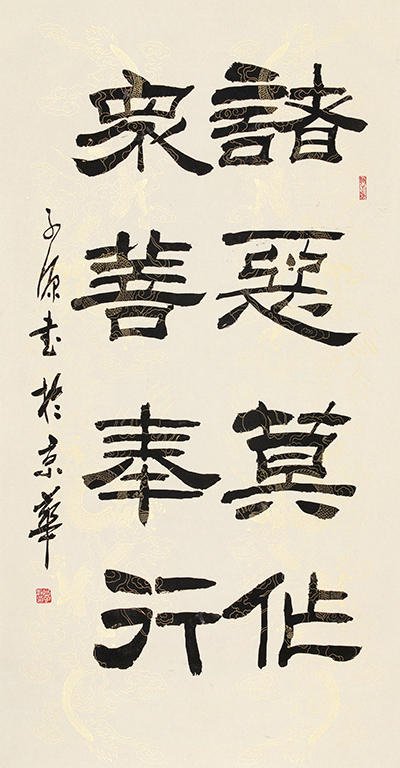 諸惡莫作
衆善奉行
子源書於京華